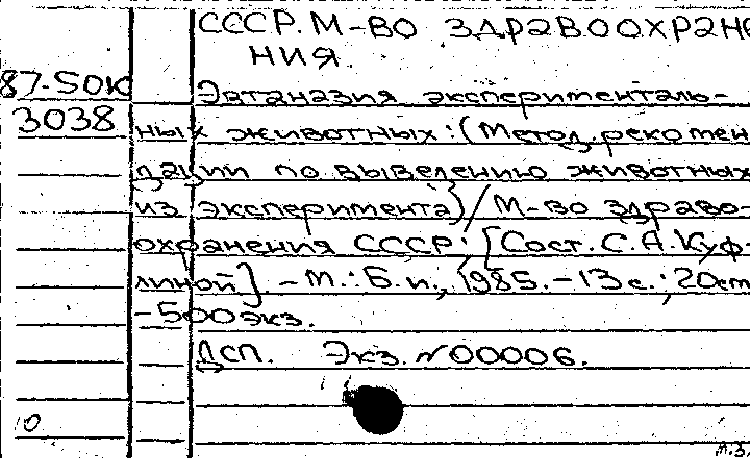 СССР. М-ВО ЗДРАВООХРАНЕ
НИЯ.
87-50К
Эвтаназия эксперименталь-
3038
ных животных: (Метод. рекомен
дации по выведению животных
из эксперимента) / М-во здраво-
охранения СССР; [Сост. С. А. Куф-
линой]. - М.: Б. и., 1985. - 13 с.; 20 см
- 500 экз.
ДСП. Экз. N 00006.
10